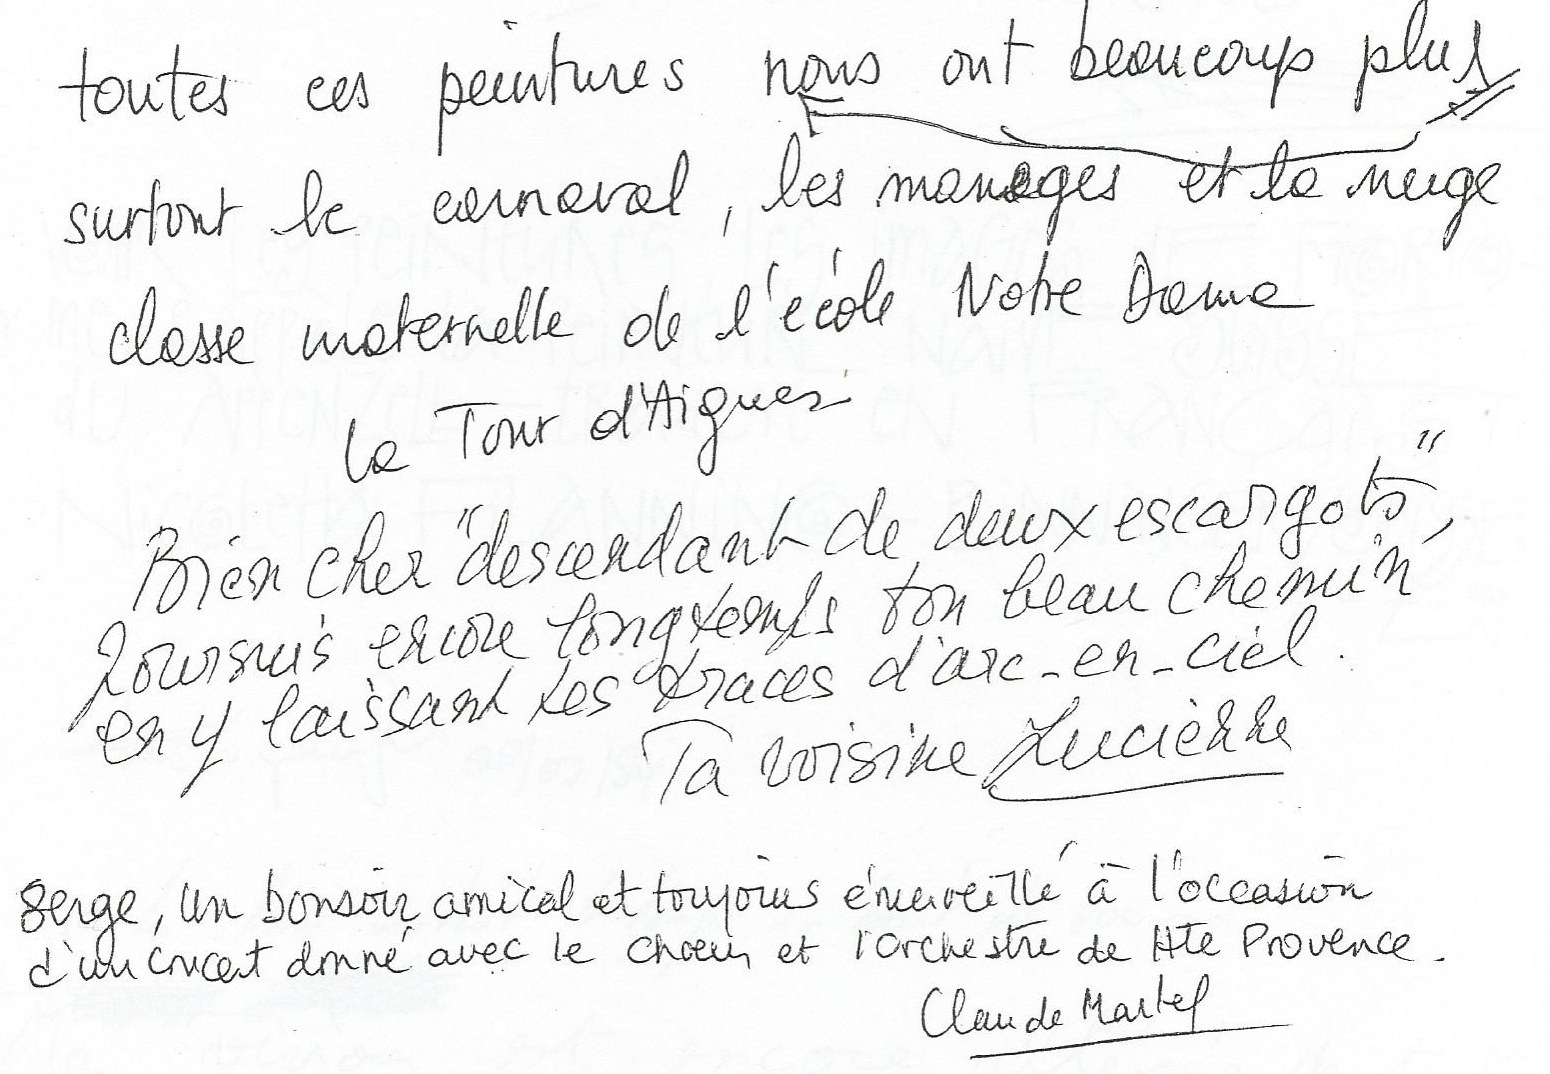 toutes ces peintures nous ont beaucoup plus
surtout le carnaval, les manèges et la neige
classe maternelle de l'école Notre Dame
la Tour d'Aigues
Bien cher "descendant de deux escargots",
Poursuis encore longtemps ton beau chemin
en y laissant tes traces d'arc-en-ciel.
Ta voisine Lucienne
Serge, un bonsoir amical et toujours émerveillé à l'occasion
d'un concert donné avec le choeur et l'orchestre de Hte Provence.
Claude Martel